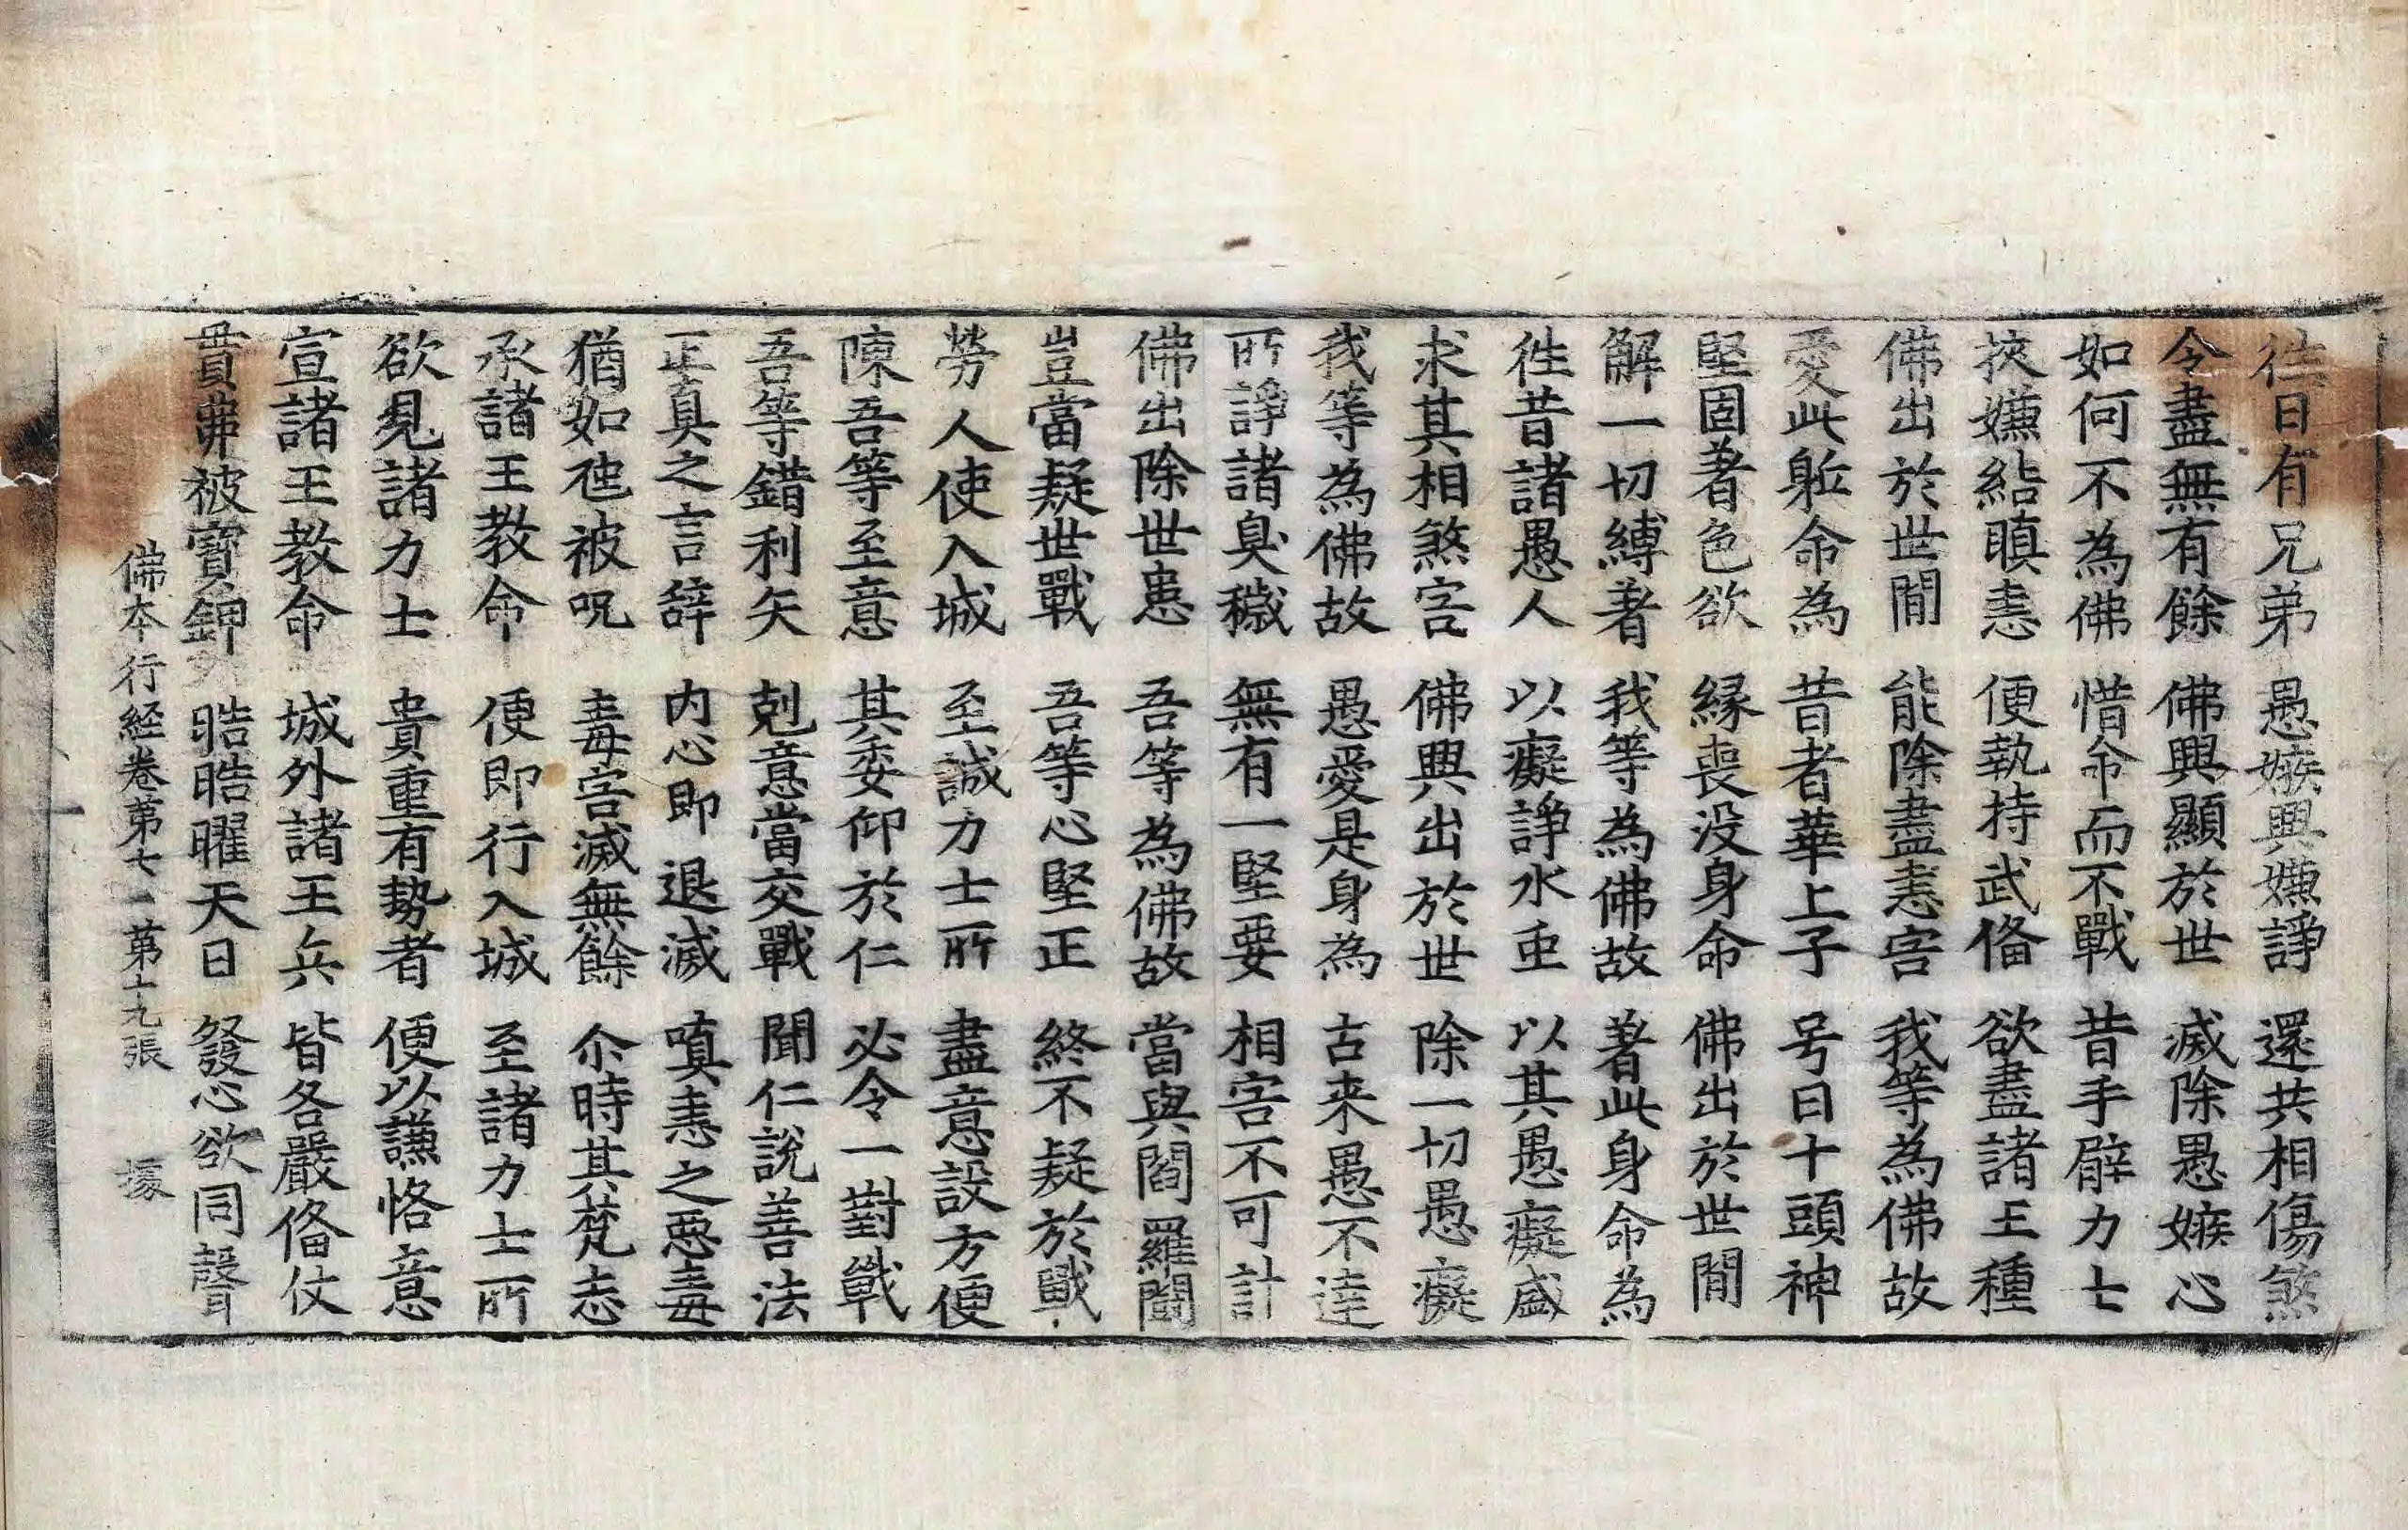 徃日有兄弟 愚嫉興嫌諍 還共相傷煞
令盡無有餘 佛興顯於世 滅除愚嫉心
如何不為佛 惜命而不戰 昔手臂力士
挾嫌結瞋恚 便執持武俻 欲盡諸王種
佛出於世閒 能除盡恚害 我等為佛故
愛此軀命為 昔者華上子 号曰十頭神
堅固著色欲 緣喪没身命 佛出於世閒
解一切縛著 我等為佛故 著此身命為
徃昔諸愚人 以癡諍水重 以其愚癡盛
求其相煞害 佛興出於世 除一切愚癡
我等為佛故 愚愛是身為 古来愚不達
所諍諸臭穢 無有一堅要 相害不可計
佛出除世患 吾等為佛故 當與閻羅鬪
豈當疑世戰 吾等心堅正 終不疑於戰
勞人使入城 至誠力士所 盡意設方便
陳吾等至意 其委仰於仁 必令一對戰
吾等錯利矢 剋意當交戰 聞仁說善法
正真之言辭 内心即退滅 嗔恚之惡毒
猶如虵被呪 毒害滅無餘 尒時其梵志
承諸王教命 便即行入城 至諸力士所
欲見諸力士 貴重有勢者 便以謙恪意
宣諸王教命 城外諸王兵 皆各嚴俻仗
貫茀被寶鉀 晧晧曜天日 發心欲同聲
佛本行経卷第七 第十九張 據